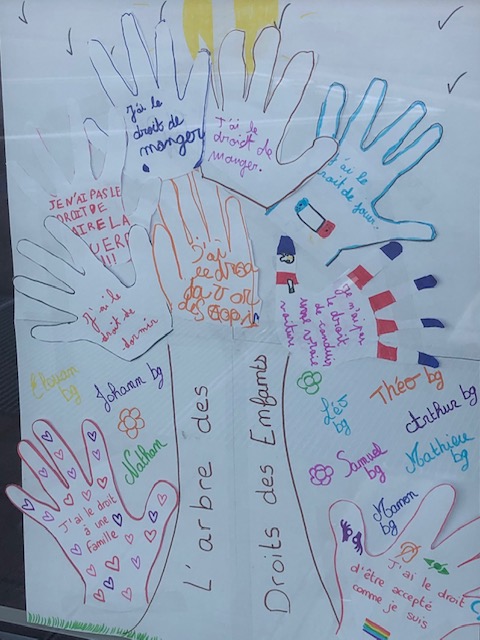 J'ai le
droit de
manger
J'ai le
droit de
manger.
J'ai le
droit de
jouer.
JE N'AI PAS LE
DROIT DE
FAIRE LA
GUERRE
!!!
J'ai
le droit
d'avoir
des copains
J'ai le
droit de
dormir
Je n'ai pas
le droit
de conduire
une vraie
voiture
Eloyan
bg
Johann bg
Nathan
Théo bg
Léo
bg
Arthur bg
Samuel
bg
Mathieu
bg
Manon
bg
L'arbre des
Droits des Enfants
J'ai le droit
à une
famille
J'ai le droit
d'être accepté
comme je suis